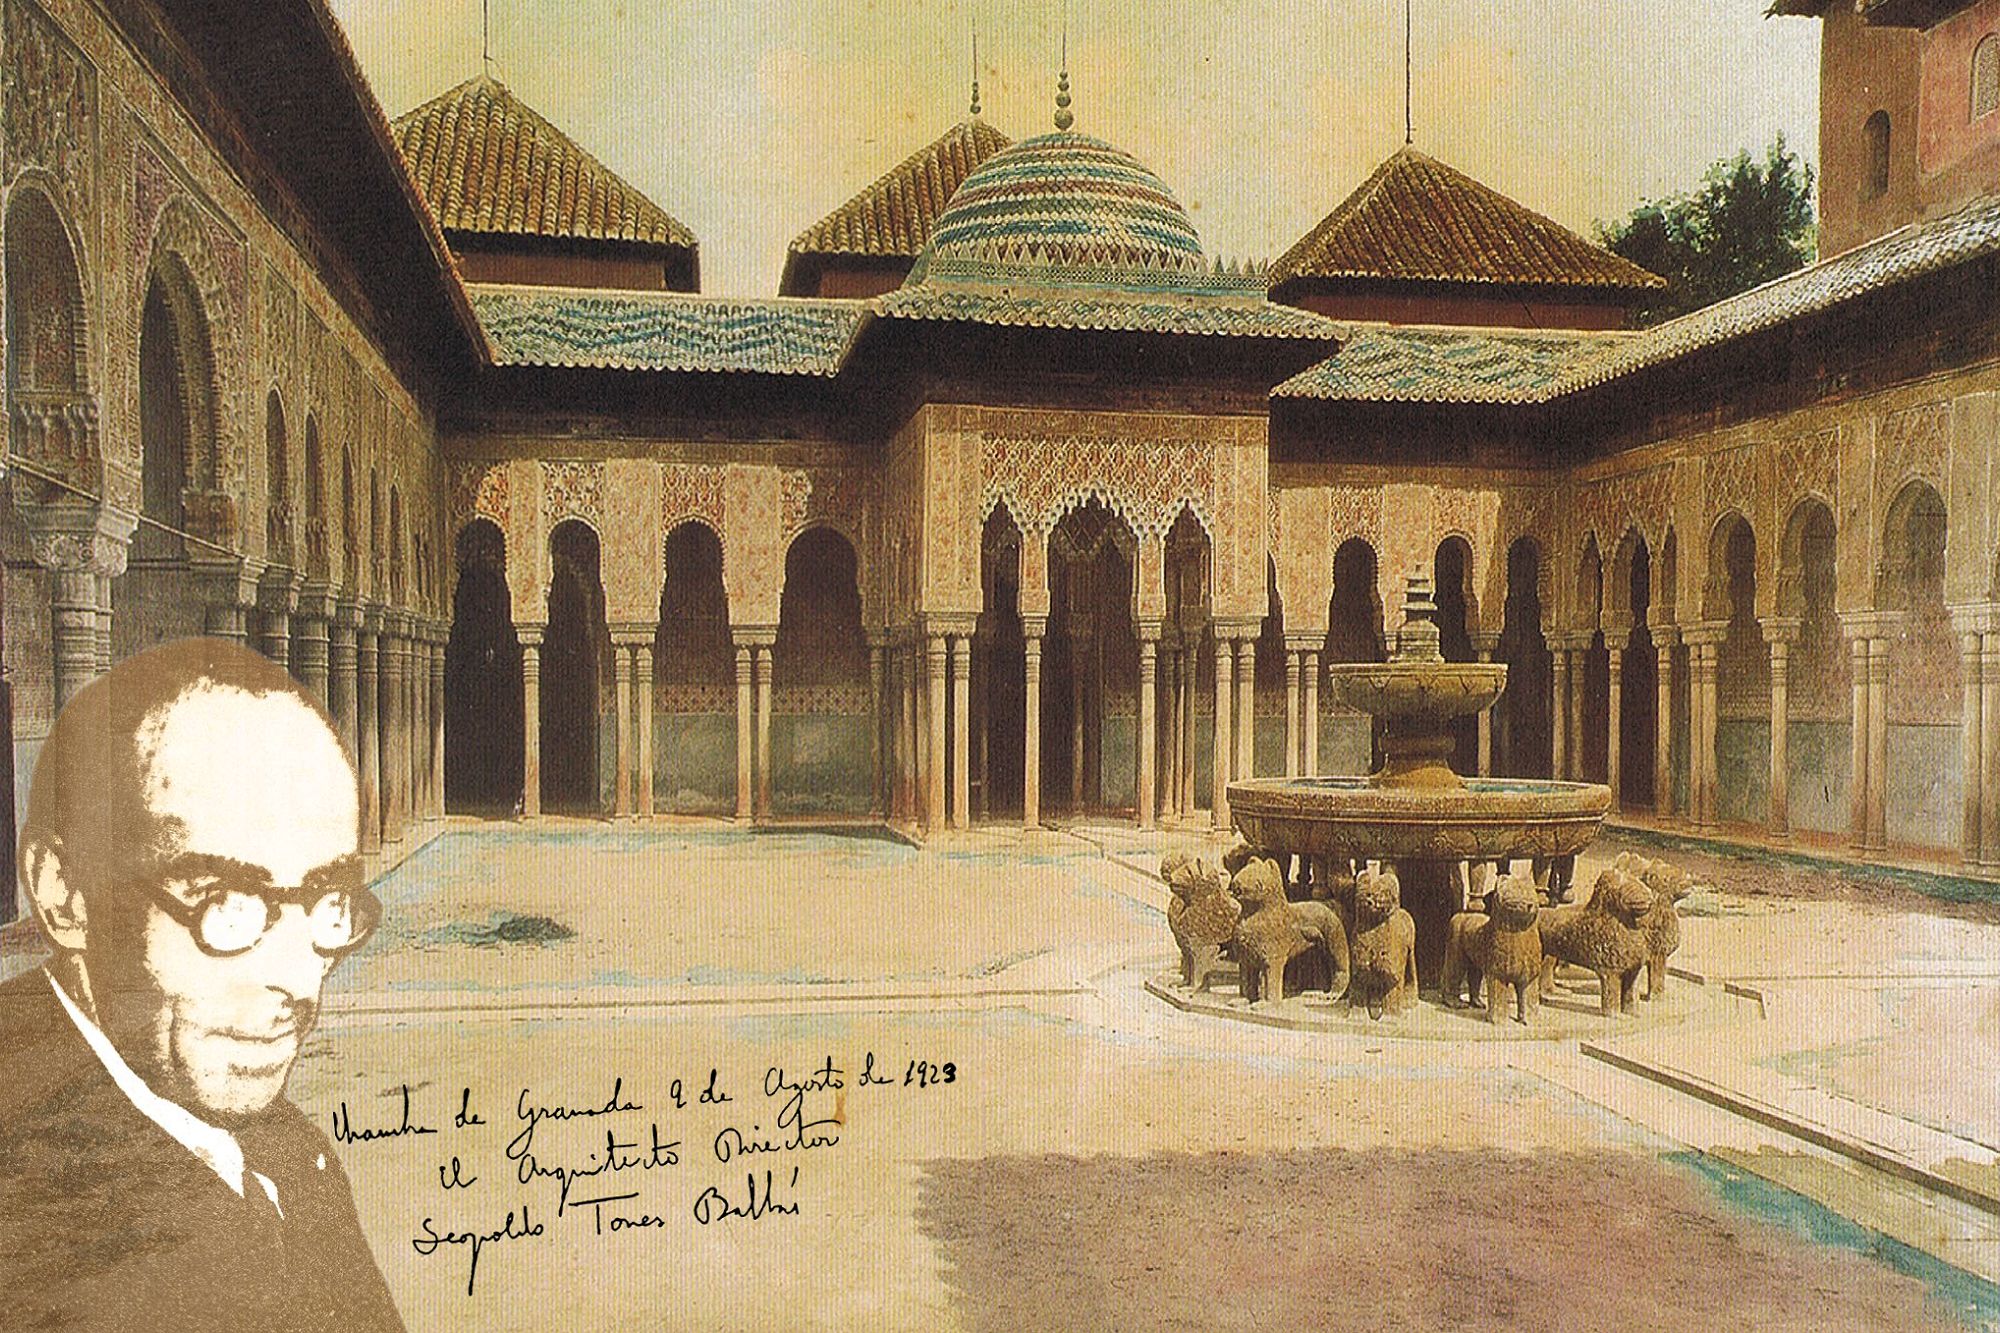 Alhambra de Granada 9 de Agosto de 1923
El Arquitecto Director
Leopoldo Torres Balbás